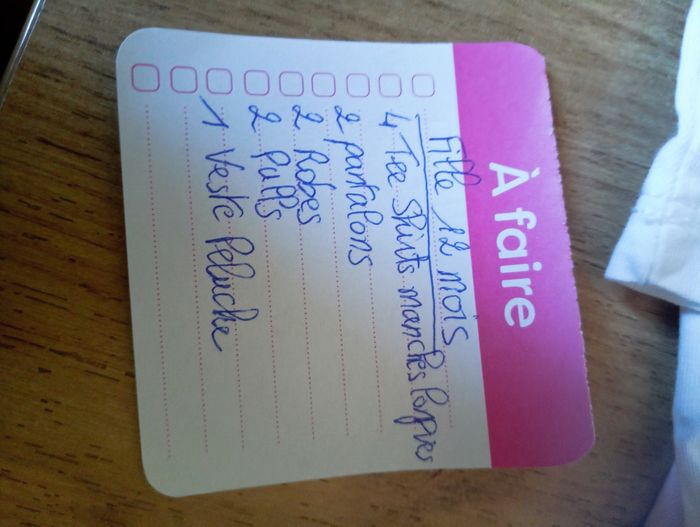 À faire
Fille 12 mois
4 Tee Shirts manches longues
2 pantalons
2 Robes
2 Pulls
1 Veste Peluche